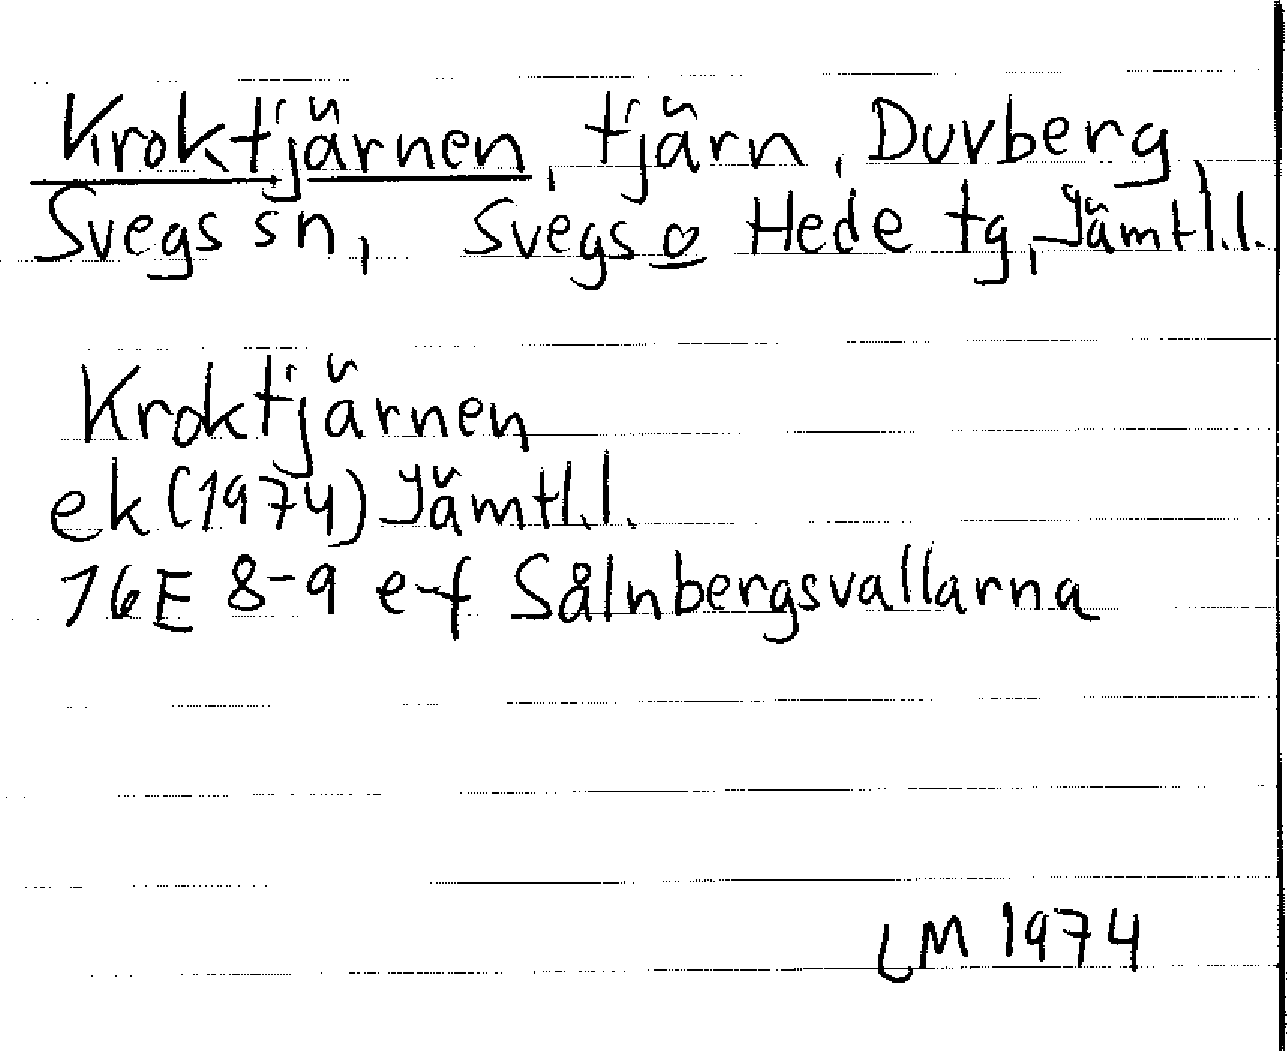 Kroktjärnen, tjärn, Duvberg,
Svegs sn, Svegs o Hede tg, Jämtl.l.
Kroktjärnen
ek (1974) Jämtl.l.
16E 8-9 e-f Sålnbergsvallarna
LM 1974